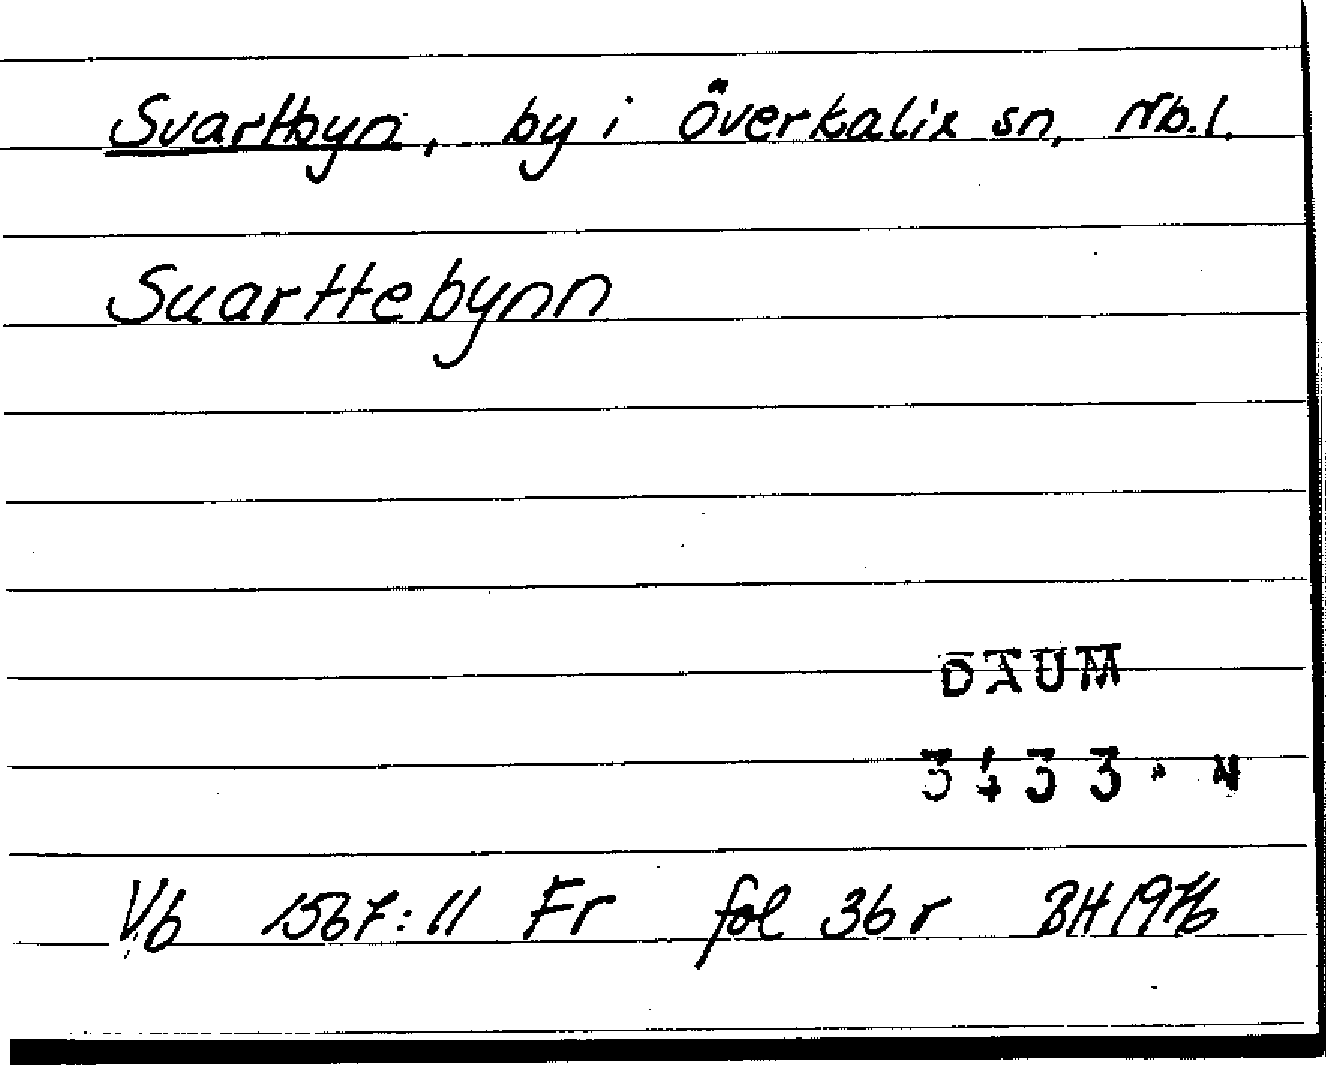 Svartbyn, by i Överkalix sn, Nb.l.
Suarttebynn
DAUM
3433. N
Vb 1567:11 Fr fol 36 r BH 1976